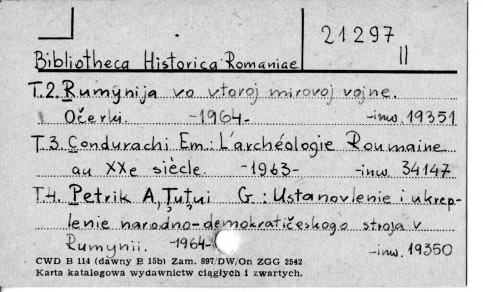 21297
II
Bibliotheca Historica Romaniae
T.2. Rumynija vo vtoroj mirovoj vojne.
Očerki. -1964- -inw. 19351
T.3. Condurachi Em.: L'archéologie Roumaine
au XXe siècle. -1963- -inw. 34147
T.4. Petrik A, Ţuţui G : Ustanovlenie i ukrep-
lenie narodno-demokratičeskogo stroja v
Rumynii. -1964- -inw. 19350
CWD B 114 (dawny B 15b) Zam. 897/DW/On ZGG 2542
Karta katalogowa wydawnictw ciągłych i zwartych.